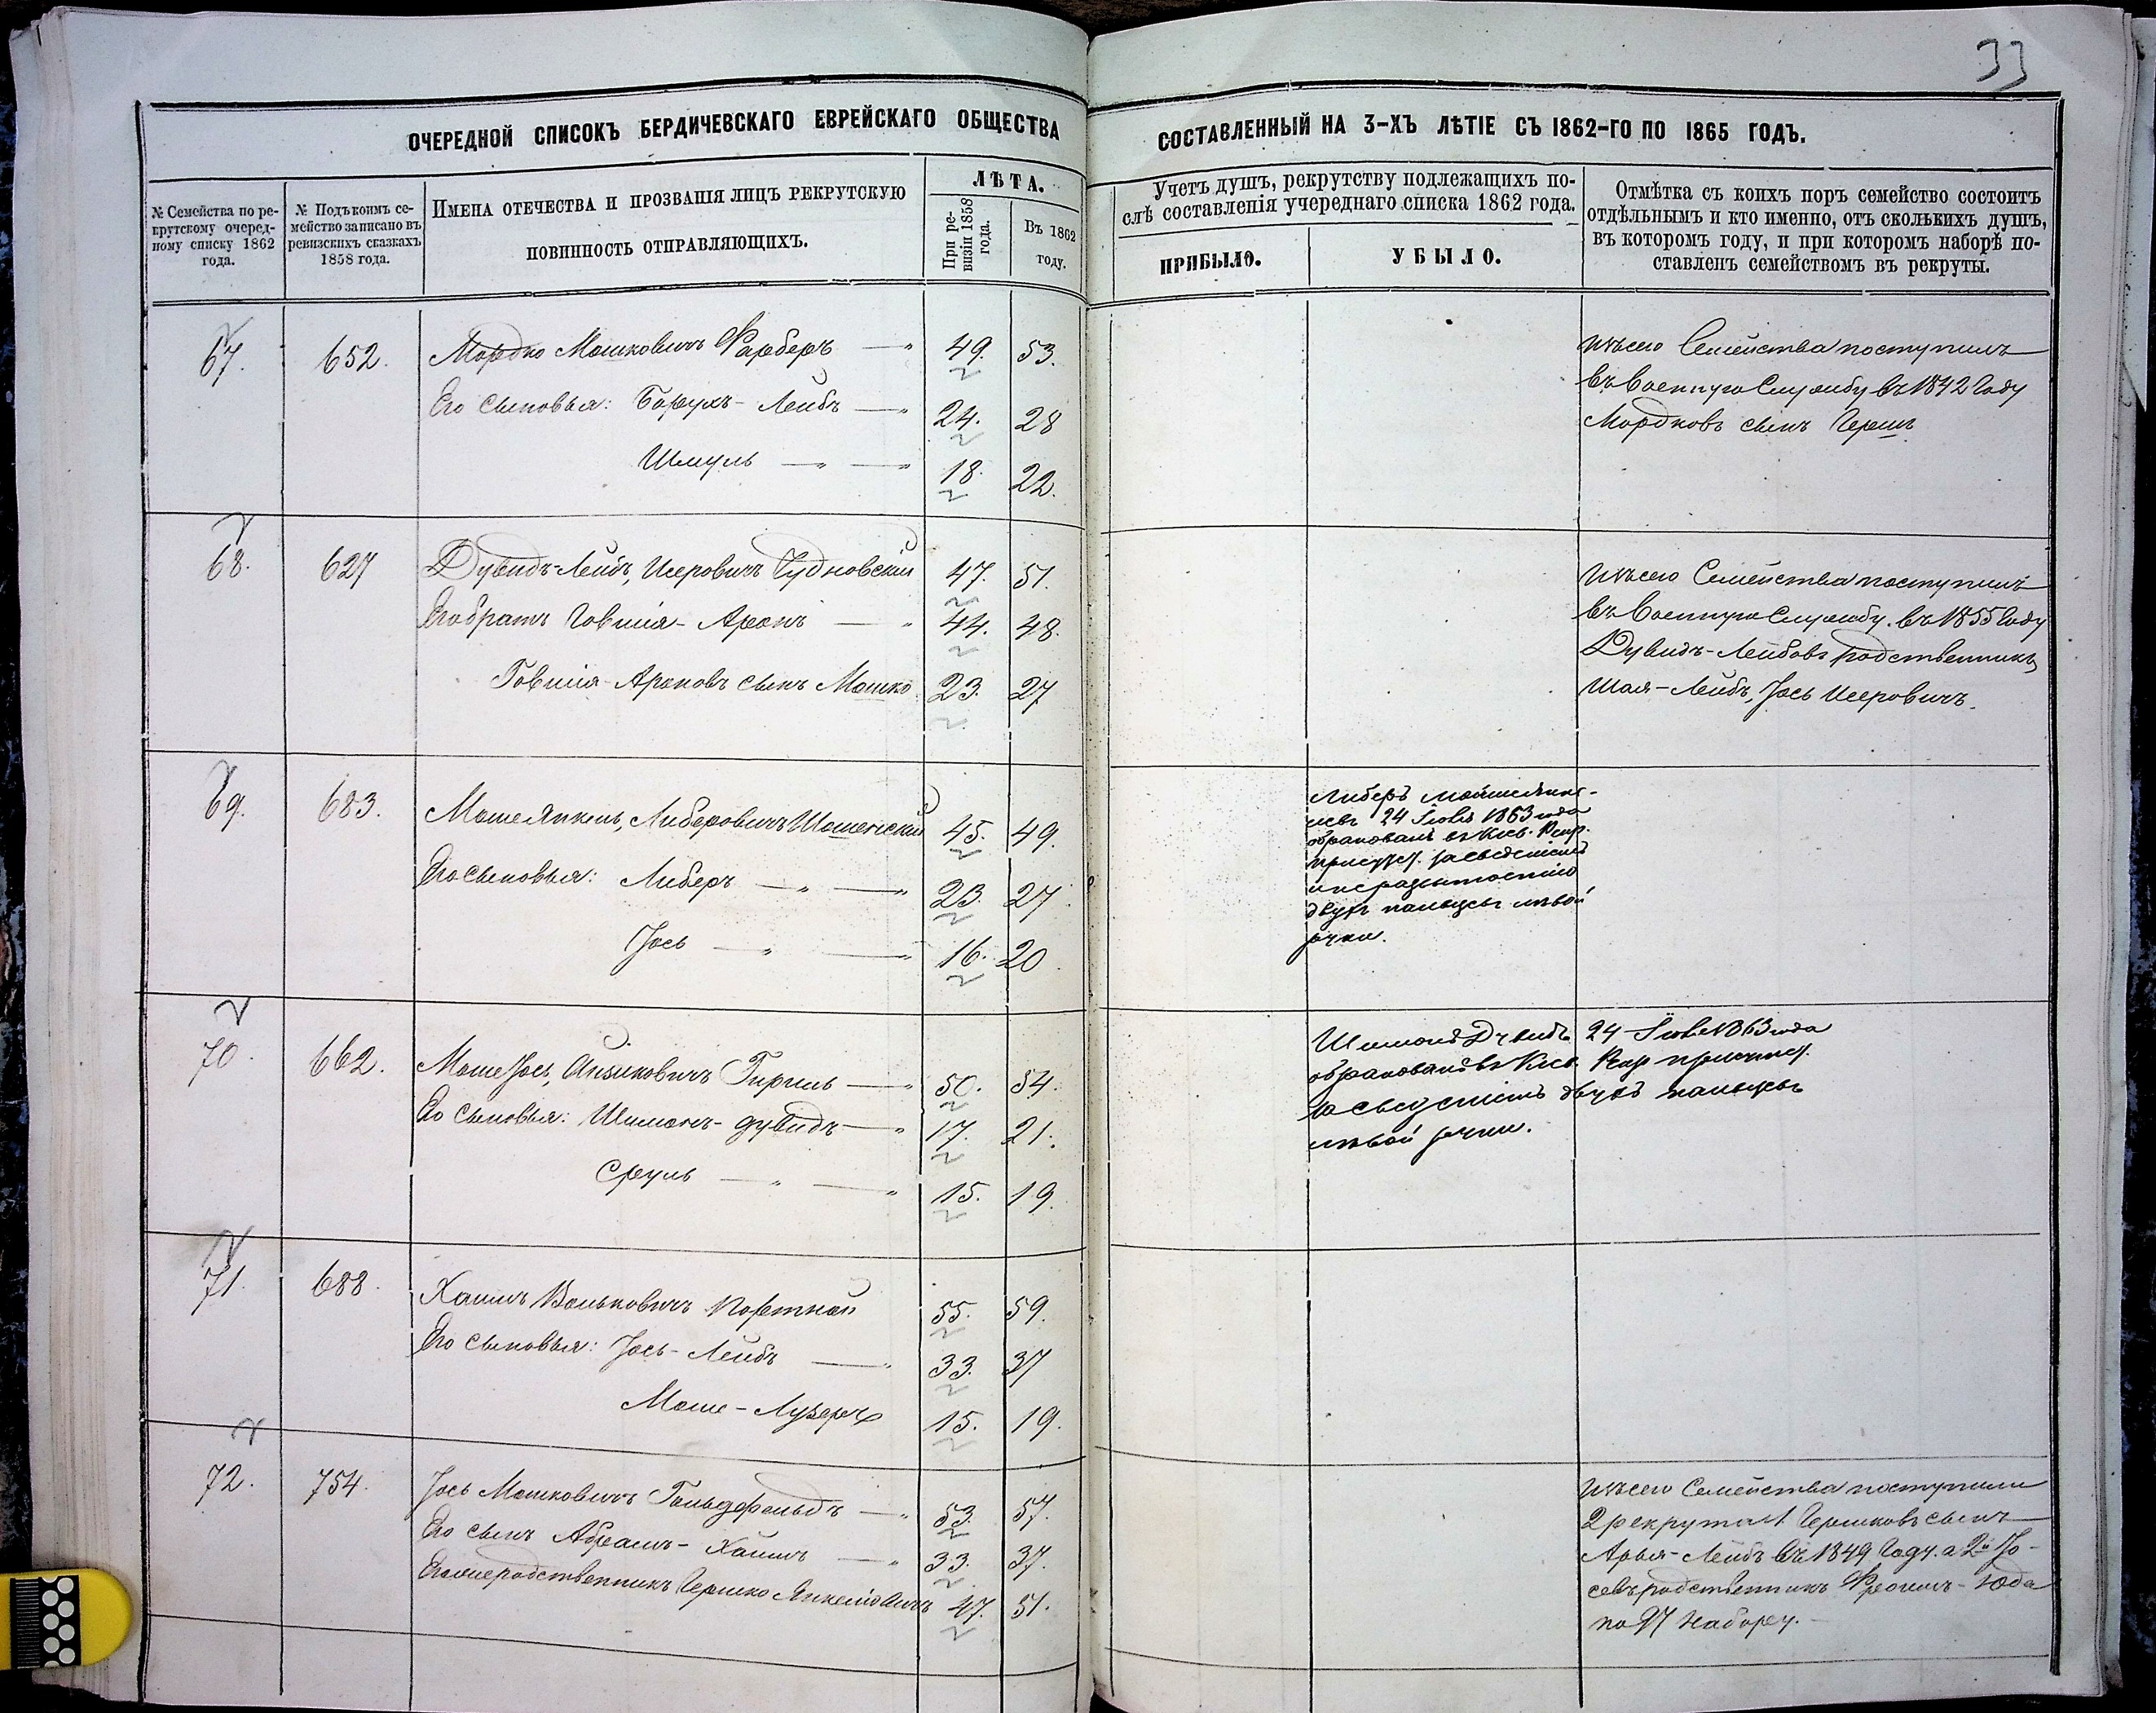 33
ОЧЕРЕДНОЙ СПИСОКЪ БЕРДИЧЕВСКАГО ЕВРЕЙСКАГО ОБЩЕСТВА
СОСТАВЛЕННЫЙ НА 3-ХЪ ЛѢТІЕ СЪ 1862-ГО ПО 1865 ГОДЪ.
№ Семейства по ре-
крутскому очеред-
ному списку 1862
года.
№ Подъ коимъ се-
мейство записано въ
ревизскихъ сказкахъ
1858 года.
ИМЕНА ОТЕЧЕСТВА И ПРОЗВАНІЯ ЛИЦЪ РЕКРУТСКУЮ
ПОВИННОСТЬ ОТПРАВЛЯЮЩИХЪ.
ЛѢТА.
При ре-
визіи 1858
года.
Въ 1862
году.
Учетъ душъ, рекрутству подлежащихъ по-
слѣ составленія учереднаго списка 1862 года.
ПРИБЫЛО.
УБЫЛО.
Отмѣтка съ коихъ поръ семейство состоитъ
отдѣльнымъ и кто именно, отъ сколькихъ душъ,
въ котором году, и при котором наборѣ по-
ставленъ семействомъ въ рекруты.
67. 652. Мордко Мошковичъ Фарберъ 49. 53.
Его сыновья: Борухъ-Лейбъ 24. 28
Шмуль 18. 22.
Изъ сего Семейства поступилъ
въ военную Службу въ 1842 Году
Мордковъ сынъ Гершъ
68. 627 Дувидъ-Лейбъ, Исеровичъ Чудновскій 47. 51.
Его братъ Говшія-Аронъ 44. 48.
Говшія-Ароновъ сынъ Мошко 23. 27
Изъ сего Семейства поступилъ
въ Военную Службу въ 1855 Году
Дувидъ-Лейбовъ родственникъ
Шая-Лейбъ, Іось Исеровичъ.
69. 683. Моше Янкель, Либеровичъ 45. 49.
Его сыновья: Либеръ 23. 27.
Іось 16. 20.
Либеръ
24 Іюля 1863 года
обракованъ въ Кіев. Рекр.
присут. за сведеніемъ
двухъ пальцевъ лѣвой
руки.
70. 662. Моше Іось, Айзиковичъ 50. 54.
Его сыновья: Шимонъ-Дувидъ 17. 21.
Сруль 15. 19.
Шимонъ Дувидъ 24 Іюля 1863 года
обракованъ въ Кіев. Рекр присут.
за сведеніемъ двухъ пальцевъ
лѣвой руки.
71. 688. Хаимъ Вольковичъ Портной 55. 59.
Его сыновья: Іось-Лейбъ 33. 37
Моше-Лузеръ 15. 19.
72. 754. Іось Мошковичъ Гольдфельдъ 53. 57.
Его сынъ Абрамъ-Хаимъ 33. 37.
родственникъ Гершко Янкелiовичъ 47. 51.
Изъ сего Семейства поступили
2 рекрута 1 Гершковъ сынъ
Арья-Лейбъ въ 1849 Году. а 2й Іо-
севъ родственникъ Фроимъ-Юда
по 97 Набору.